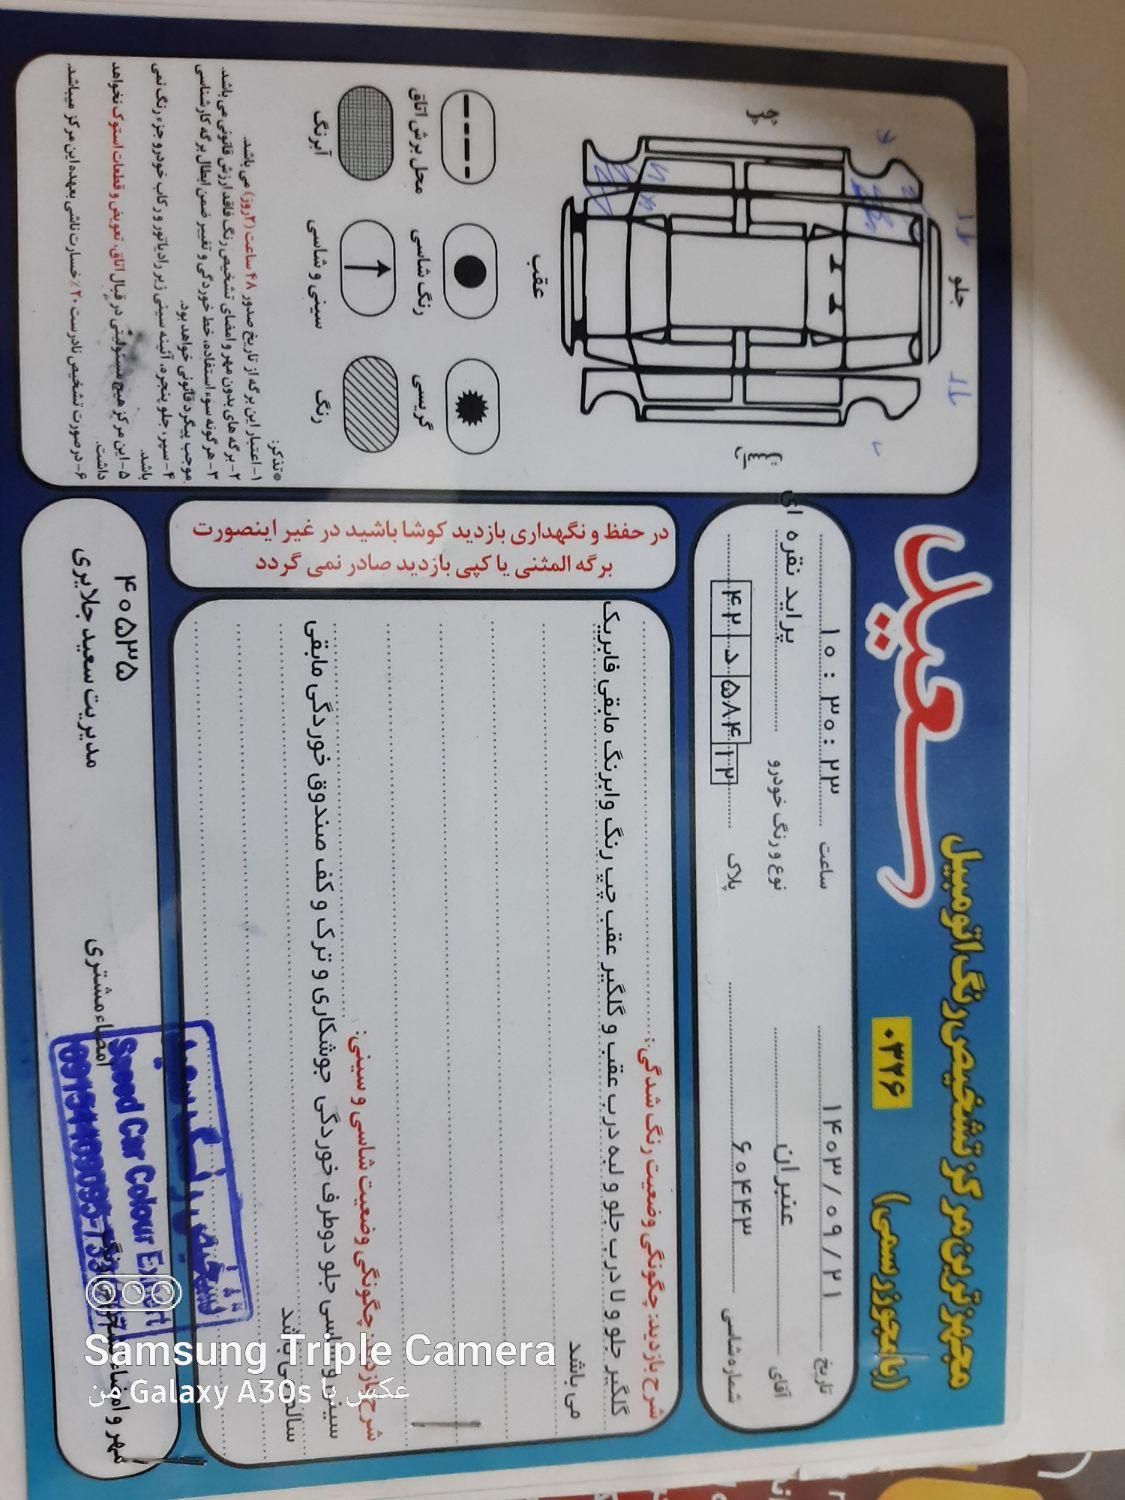 مجهزترین مرکز تشخیص رنگ اتومبیل
(با مجوز رسمی)
۰۳۲۶
سعید
تاریخ ۱۴۰۳/۰۹/۲۱
ساعت ۱۰:۳۰:۲۳
آقای عنبران
نوع و رنگ خودرو پراید نقره ای
شماره شاسی ۶۰۴۴۳
پلاک ۴۲ د ۵۸۴ ۱۲
شرح بازدید: چگونگی وضعیت رنگ شدگی:
گلگیر جلو و لا درب جلو و لبه درب عقب و گلگیر عقب چپ رنگ وابرنگ مابقی فابریک
می باشد
شرح بازدید: چگونگی وضعیت شاسی و سینی:
سینی و شاسی جلو دوطرف خوردگی جوشکاری و ترک و کف صندوق خوردگی مابقی
سالم می باشد
در حفظ و نگهداری بازدید کوشا باشید در غیر اینصورت
برگه المثنی یا کپی بازدید صادر نمی گردد
جلو
عقب
محل برش اتاق
رنگ شاسی
گریسی
آبرنگ
سینی و شاسی
رنگ
تذکر:
۱- اعتبار این برگه از تاریخ صدور ۴۸ ساعت (۲روز) می باشد.
۲- برگه های بدون مهر و امضای تشخیص رنگ فاقد ارزش قانونی می باشد.
۳- هر گونه سوء استفاده، خط خوردگی و تغییر ضمن ابطال برگه کارشناسی
موجب پیگرد قانونی خواهد بود.
۴- سپر، جلو پنجره، آئینه سینی زیر رادیاتور و رکاب خودرو جزء رنگ نمی
باشد.
۵- این مرکز هیچ مسئولیتی در قبال اتاق تعویض و قطعات استوک نخواهد
داشت.
۶- در صورت تشخیص نادرست ۲۰٪ خسارت ناشی بعهده این مرکز میباشد.
۴۰۵۳۵
مدیریت سعید جلایری
امضاء مشتری
مهر و امضاء
Saeed Car Colour Expert
Samsung Triple Camera
عکس با Galaxy A30s من